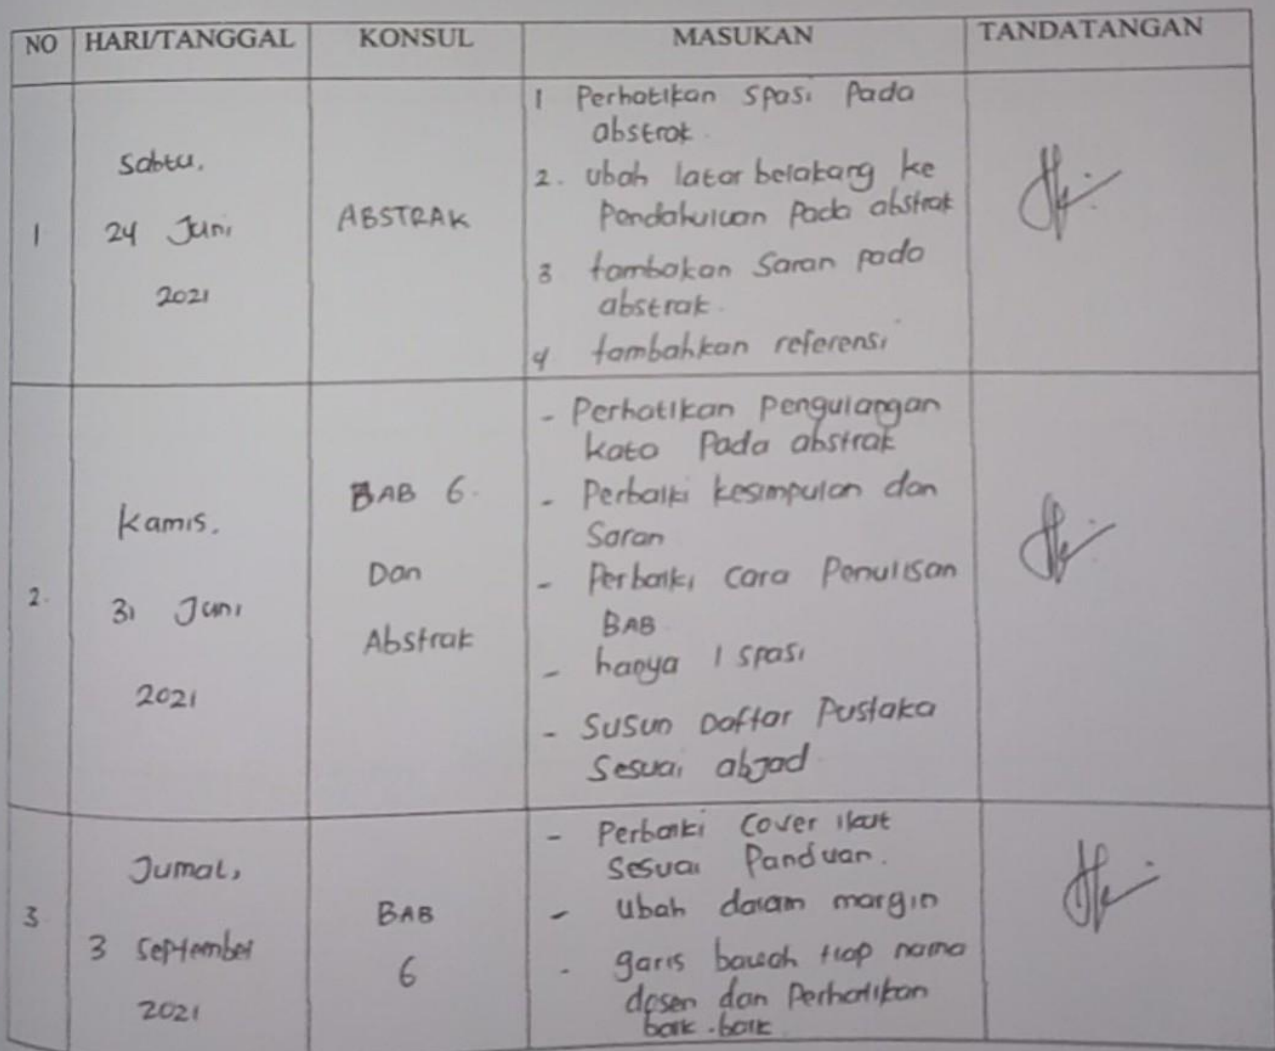 NO HARI/TANGGAL KONSUL MASUKAN TANDATANGAN
1
Sabtu,
24 Juni
2021
ABSTRAK
1 Perhatikan spasi Pada
abstrak.
2. Ubah latar belakang ke
Pendahuluan Pada abstrak
3 tambakan Saran pada
abstrak.
4 tambahkan referensi
2.
Kamis.
31 Juni
2021
BAB 6.
Dan
Abstrak
- Perhatikan Pengulangan
kata Pada abstrak
- Perbaiki kesimpulan dan
Saran
- Perbaiki cara Penulisan
BAB
- hanya 1 spasi
- Susun Daftar Pustaka
Sesuai abjad
3.
Jumat,
3 September
2021
BAB
6
- Perbaiki Cover ikut
Sesuai Panduan.
- Ubah dalam margin
- garis bawah tiap nama
dosen dan Perhatikan
baik-baik